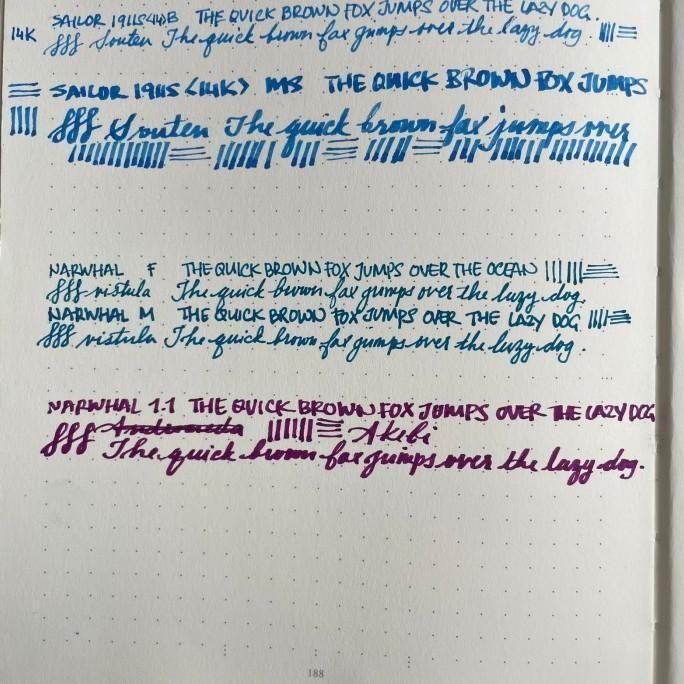 SAILOR 1911S<14K>B THE QUICK BROWN FOX JUMPS OVER THE LAZY DOG.
14K fff Souten The quick brown fox jumps over the lazy dog.
SAILOR 1911S <14K> MS THE QUICK BROWN FOX JUMPS
fff Souten The quick brown fox jumps over
NARWHAL F THE QUICK BROWN FOX JUMPS OVER THE OCEAN
fff vistula The quick brown fox jumps over the lazy dog.
NARWHAL M THE QUICK BROWN FOX JUMPS OVER THE LAZY DOG
fff vistula The quick brown fox jumps over the lazy dog.
NARWHAL 1.1 THE QUICK BROWN FOX JUMPS OVER THE LAZY DOG
fff Andromeda Akebi
The quick brown fox jumps over the lazy dog.
188